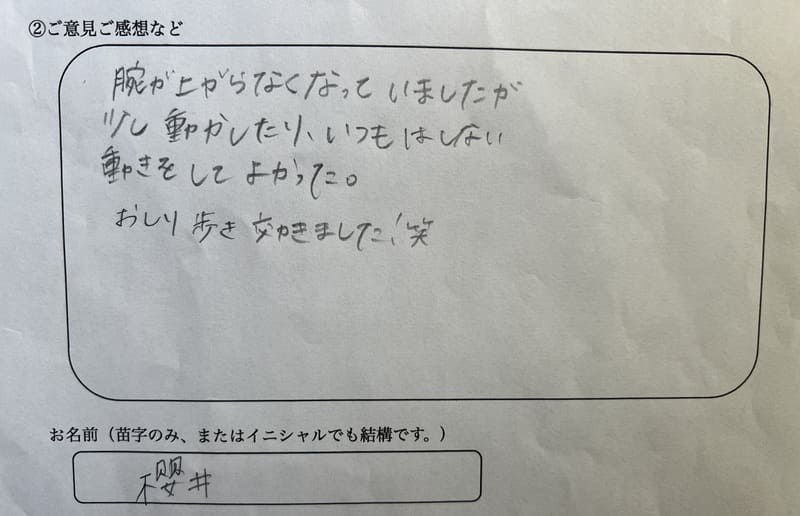 ②ご意見ご感想など
腕が上がらなくなっていましたが
少し動かしたり、いつもはしない
動きをしてよかった。
おしり歩き効きました!笑
お名前（苗字のみ、またはイニシャルでも結構です。）
櫻井